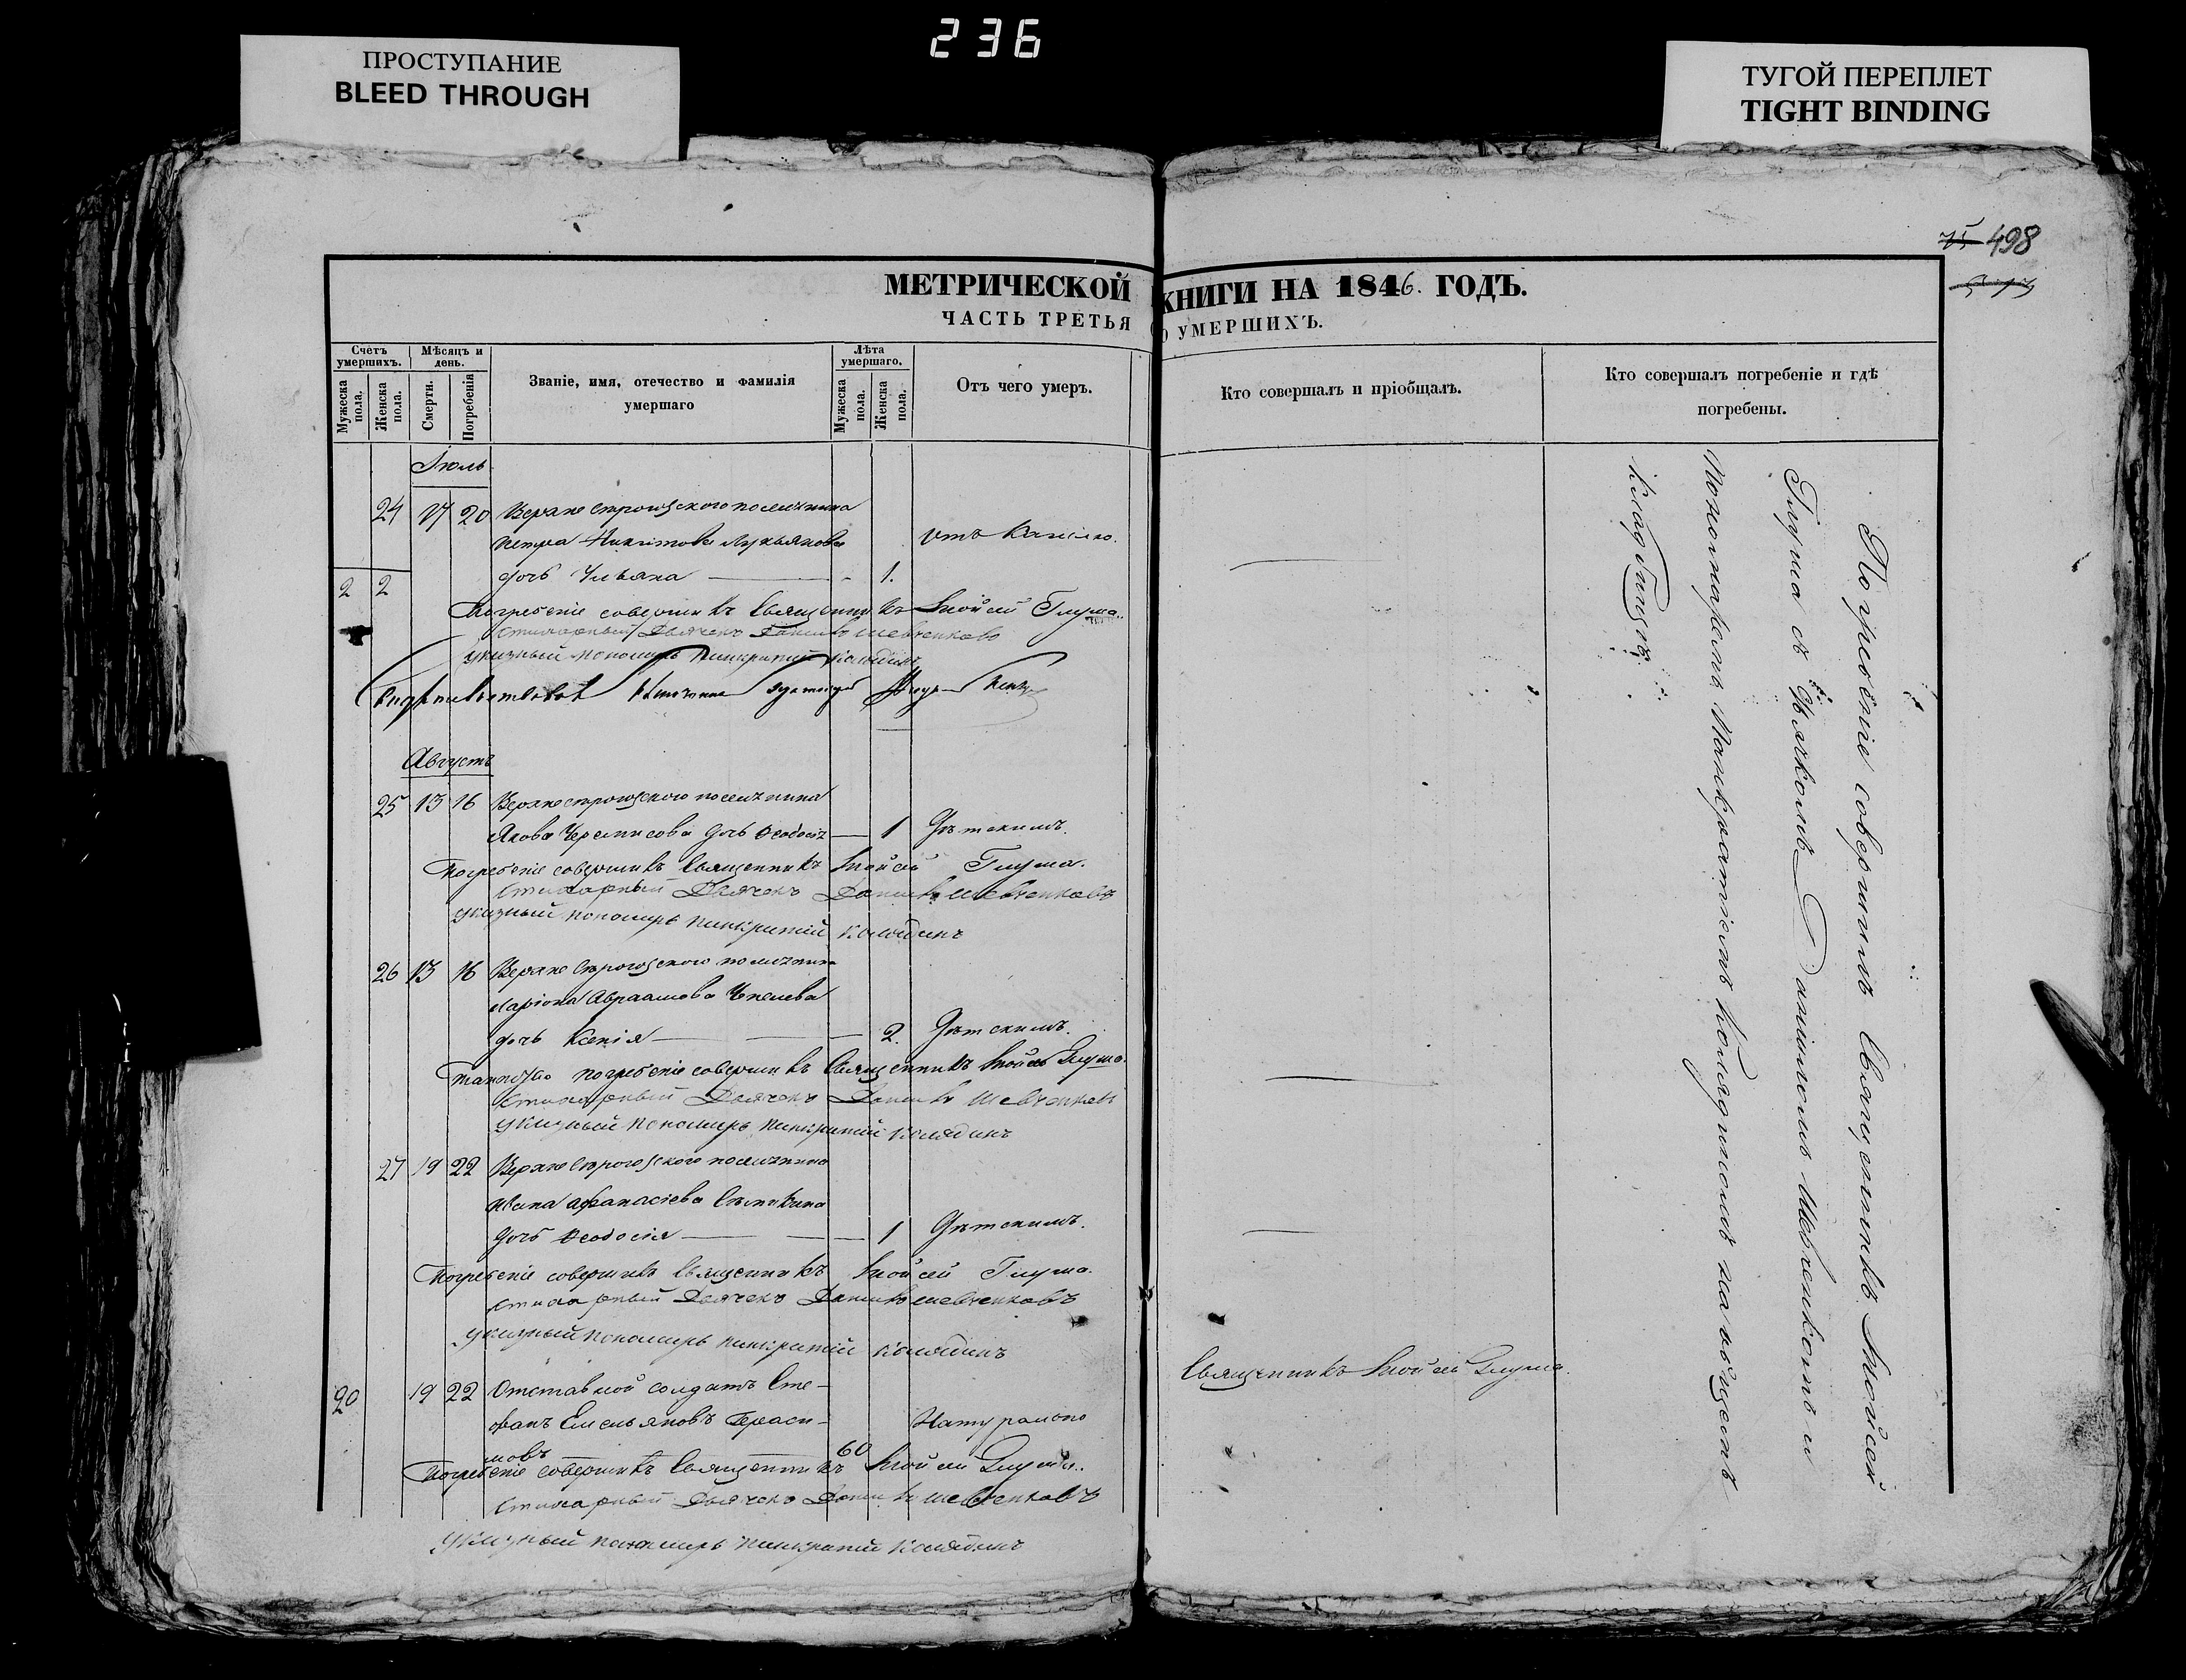 236
ПРОСТУПАНИЕ
BLEED THROUGH
ТУГОЙ ПЕРЕПЛЕТ
TIGHT BINDING
75 498
МЕТРИЧЕСКОЙ КНИГИ НА 1846. ГОДЪ.
ЧАСТЬ ТРЕТЬЯ О УМЕРШИХЪ.
Счетъ умершихъ.
Мужеска пола.
Женска пола.
Мѣсяцъ и день.
Смерти.
Погребенія
Званіе, имя, отечество и фамилія умершаго
Лѣта умершаго.
Мужеска пола.
Женска пола.
Отъ чего умеръ.
Кто совершалъ и пріобщалъ.
Кто совершалъ погребеніе и гдѣ погребены.
Іюль
24 17 20 Верхнестрогозского поселянина
Петра Никитова Лукьянова
отъ кашлю.
дочь Ульяна 1.
2 2
Погребеніе совершилъ Священникъ Мойсей Глума.
Стихарный Дьячекъ Даніилъ Шевченковъ
Указный пономарь Панкратій Колядинъ
Августъ
25 13 16 Верхнестрогозского поселянина
Якова Черемисова дочь Ѳеодосія 1 Дѣтскимъ.
Погребеніе совершилъ Священникъ Мойсей Глума.
Стихарный Дьячекъ Даніилъ Шевченковъ
Указный пономарь Панкратій Колядинъ
26 13 16 Верхнестрогозского поселянина
Ларіона Авраамова Чепелева
дочь Ксенія 2. Дѣтскимъ.
погребеніе совершилъ Священникъ Мойсей Глума.
Стихарный Дьячекъ Даніилъ Шевченковъ
Указный пономарь Панкратій Колядинъ
27 19 22 Верхнестрогозского поселянина
Ивана Афанасіева
дочь Ѳеодосія 1 Дѣтскимъ.
Погребеніе совершилъ Священникъ Мойсей Глума.
Стихарный Дьячекъ Даніилъ Шевченковъ
Указный пономарь Панкратій Колядинъ
20 19 22 Отставной солдатъ Сте-
фанъ Емельяновъ Гераси-
Натурально
мовъ 60
Священникъ Мойсей Глума.
Погребеніе совершилъ Священникъ Мойсей Глума.
Стихарный Дьячекъ Даніилъ Шевченковъ
Указный пономарь Панкратій Колядинъ
Погребеніе совершилъ Священникъ Мойсей
Глума съ Дьячкомъ Даніиломъ Шевченкомъ и
Пономаремъ Панкратіемъ Колядиномъ на общемъ
кладбищѣ.